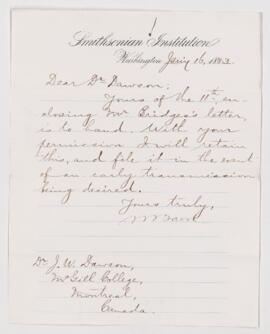 Smithsonian Institution
Washington Jany 16, 1882
Dear Dr Dawson;
Yours of the 11th, en-
closing Mr Bridges's letter,
is to hand. With your
permission I will retain
this, and file it in the event
of an early transmission
being desired.
Yours truly,
Dr J. W. Dawson,
McGill College,
Montreal,
Canada.